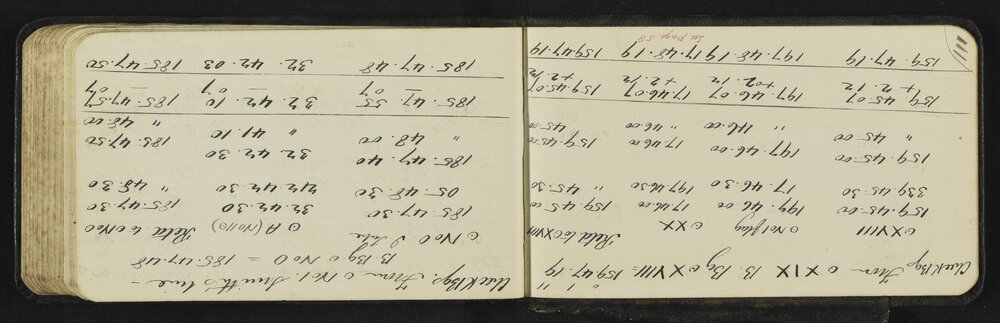 Check Bgs. From ⊙ XIX B. Bg ⊙ XVIII = 159° 47' 19"
⊙ XVIII ⊙ No 1 flag ⊙ XX Reld to ⊙ XVIII
159.45.00 197.46.00 17.46.00 159.45.00
339.45.30 17.46.30 197.46.30 " 45.30
159.45.00 197.46.00 17.46.00 159.45.00
" 45.00 " 46.00 " 46.00 " 45.00
159.45.07 197.46.07 17.46.07 159.45.07
+2.12 +02.12 +2.12 +2.12
159.47.19 197.48.19 17.48.19 159.47.19
See page 58
111
Check Bgs. From ⊙ No 1 Smith's line -
B. Bg ⊙ No 0 = 185.47.48
⊙ No 0 ⊙ A (No 110) Reld to No 0
185.47.30 32.42.30 185.47.30
05.48.30 212.42.30 " 48.30
185.47.40 32.42.30 185.47.50
" 48.00 " 41.10 " 48.00
185.47.55 32.42.10 185.47.57
— 07 — 07 — 07
185.47.48 32.42.03 185.47.50